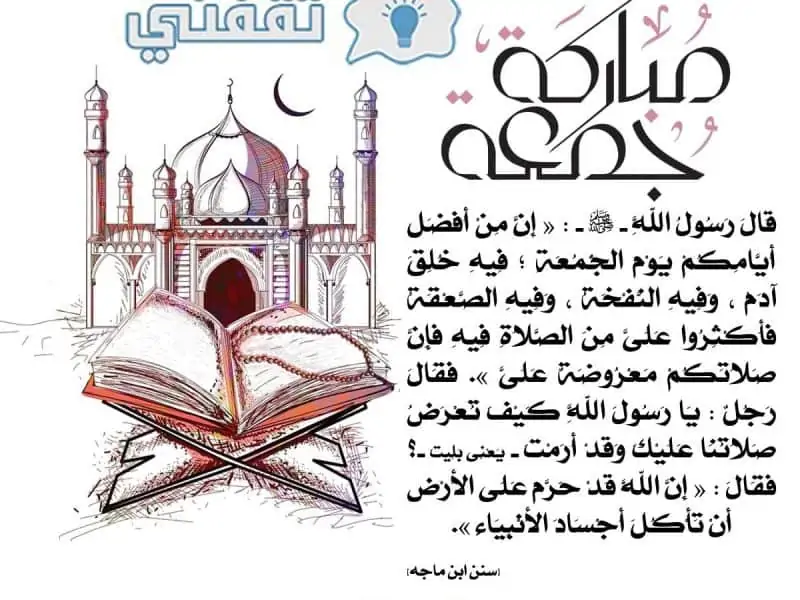 ثقفني
مباركة
جمعة
قَالَ رَسُولُ اللَّهِ ـ ﷺ ـ : « إِنَّ مِنْ أَفْضَلِ
أَيَّامِكُمْ يَوْمَ الْجُمُعَةِ ؛ فِيهِ خُلِقَ
آدَمُ ، وَفِيهِ النَّفْخَةُ ، وَفِيهِ الصَّعْقَةُ
فَأَكْثِرُوا عَلَىَّ مِنَ الصَّلاَةِ فِيهِ فَإِنَّ
صَلاَتَكُمْ مَعْرُوضَةٌ عَلَىَّ ». فَقَالَ
رَجُلٌ : يَا رَسُولَ اللَّهِ كَيْفَ تُعْرَضُ
صَلاَتُنَا عَلَيْكَ وَقَدْ أَرَمْتَ ـ يعنى بليت ـ؟
فَقَالَ : « إِنَّ اللَّهَ قَدْ حَرَّمَ عَلَى الأَرْضِ
أَنْ تَأْكُلَ أَجْسَادَ الأَنْبِيَاءِ ».
[سنن ابن ماجه]